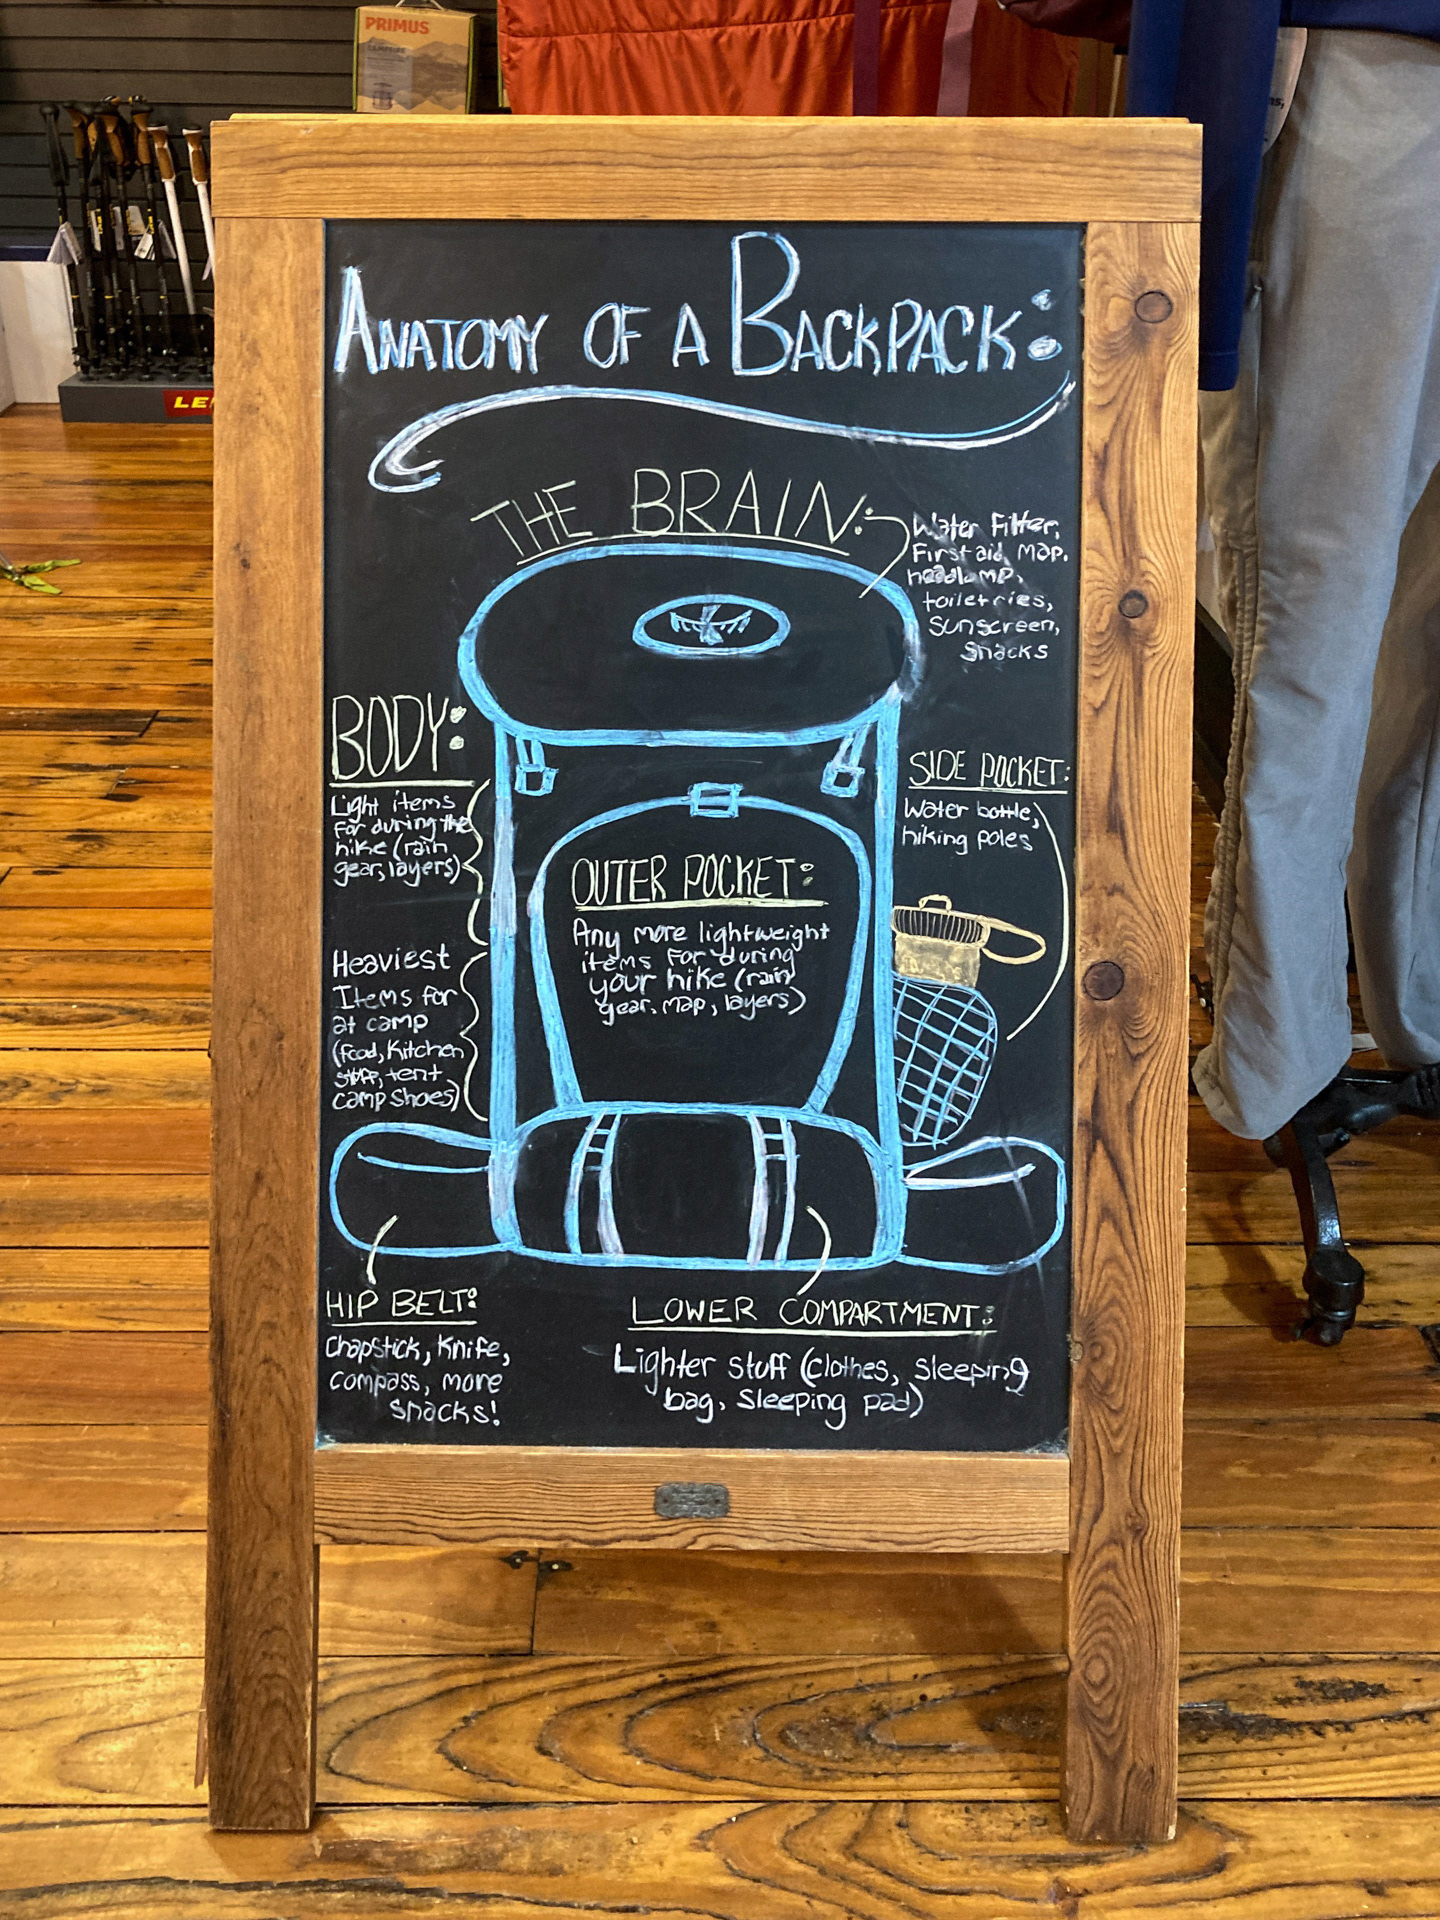 PRIMUS
CAMPFIRE
ANATOMY OF A BACKPACK:
THE BRAIN:
Water Filter,
First aid, map,
headlamp,
toiletries,
sunscreen,
snacks
BODY:
Light items
for during the
hike (rain
gear, layers)
Heaviest
Items for
at camp
(food, Kitchen
stuff, tent
camp shoes)
SIDE POCKET:
Water bottle,
hiking poles
OUTER POCKET:
Any more lightweight
items for during
your hike (rain
gear, map, layers)
HIP BELT:
Chapstick, Knife,
compass, more
snacks!
LOWER COMPARTMENT:
Lighter stuff (clothes, sleeping
bag, sleeping pad)